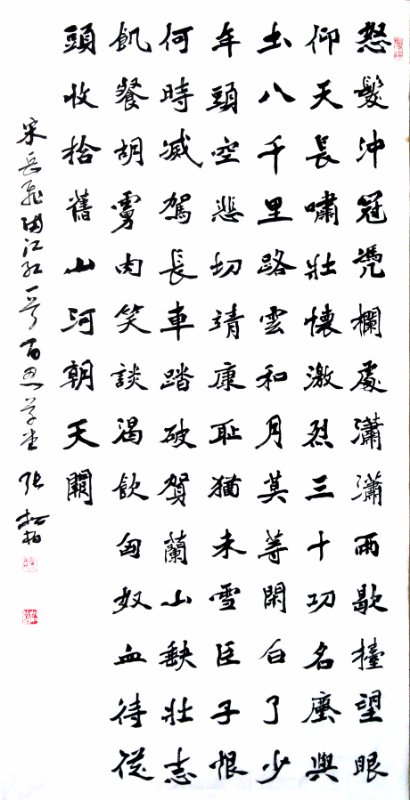 怒髮沖冠凴欄處瀟瀟雨歇擡望眼
仰天長嘯壯懷激烈三十功名塵與
土八千里路雲和月莫等閑白了少
年頭空悲切靖康恥猶未雪臣子恨
何時滅駕長車踏破賀蘭山缺壯志
飢餐胡虜肉笑談渴飲匈奴血待從
頭收拾舊山河朝天闕
宋岳飛滿江红一首 草堂 张松柏